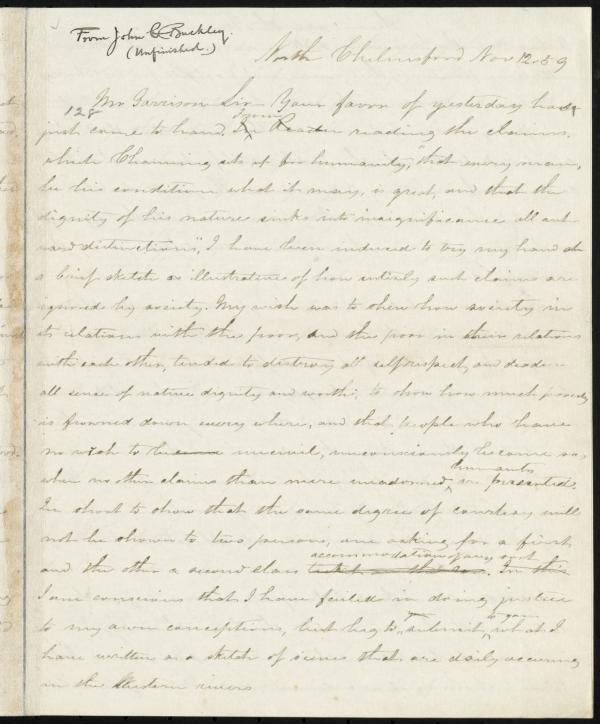 From John C Buckley.
(Unfinished.)
North Chelmsford Nov 12. 59
Mr Garrison Sir Your favor of yesterday has
128
just come to hand. Upon reading the claims,
which Channing sets up for humanity, "that every man,
be his condition what it may, is great, and that the
dignity of his nature sinks into insignificance all out-
ward distinctions", I have been induced to try my hand at
a brief sketch as illustrative of how entirely such claims are
ignored by society. My wish was to show how society in
its relations with the poor, and the poor in their relations
with each other, tended to destroy all self respect, and deaden
all sense of native dignity and worth; to show how much poverty
is frowned down every where, and that people who have
no wish to be uncivil, unconsciously become so,
when no other claims than mere unadorned humanity are presented.
In short to show that the same degree of courtesy will
not be shown to two persons, one asking for a first
and the other a second class accommodation of any sort
ticket on the In this
I am conscious that I have failed in doing justice
to my own conceptions, but beg to submit to you, what I
have written as a sketch of scenes that are daily occurring
in the Western rivers